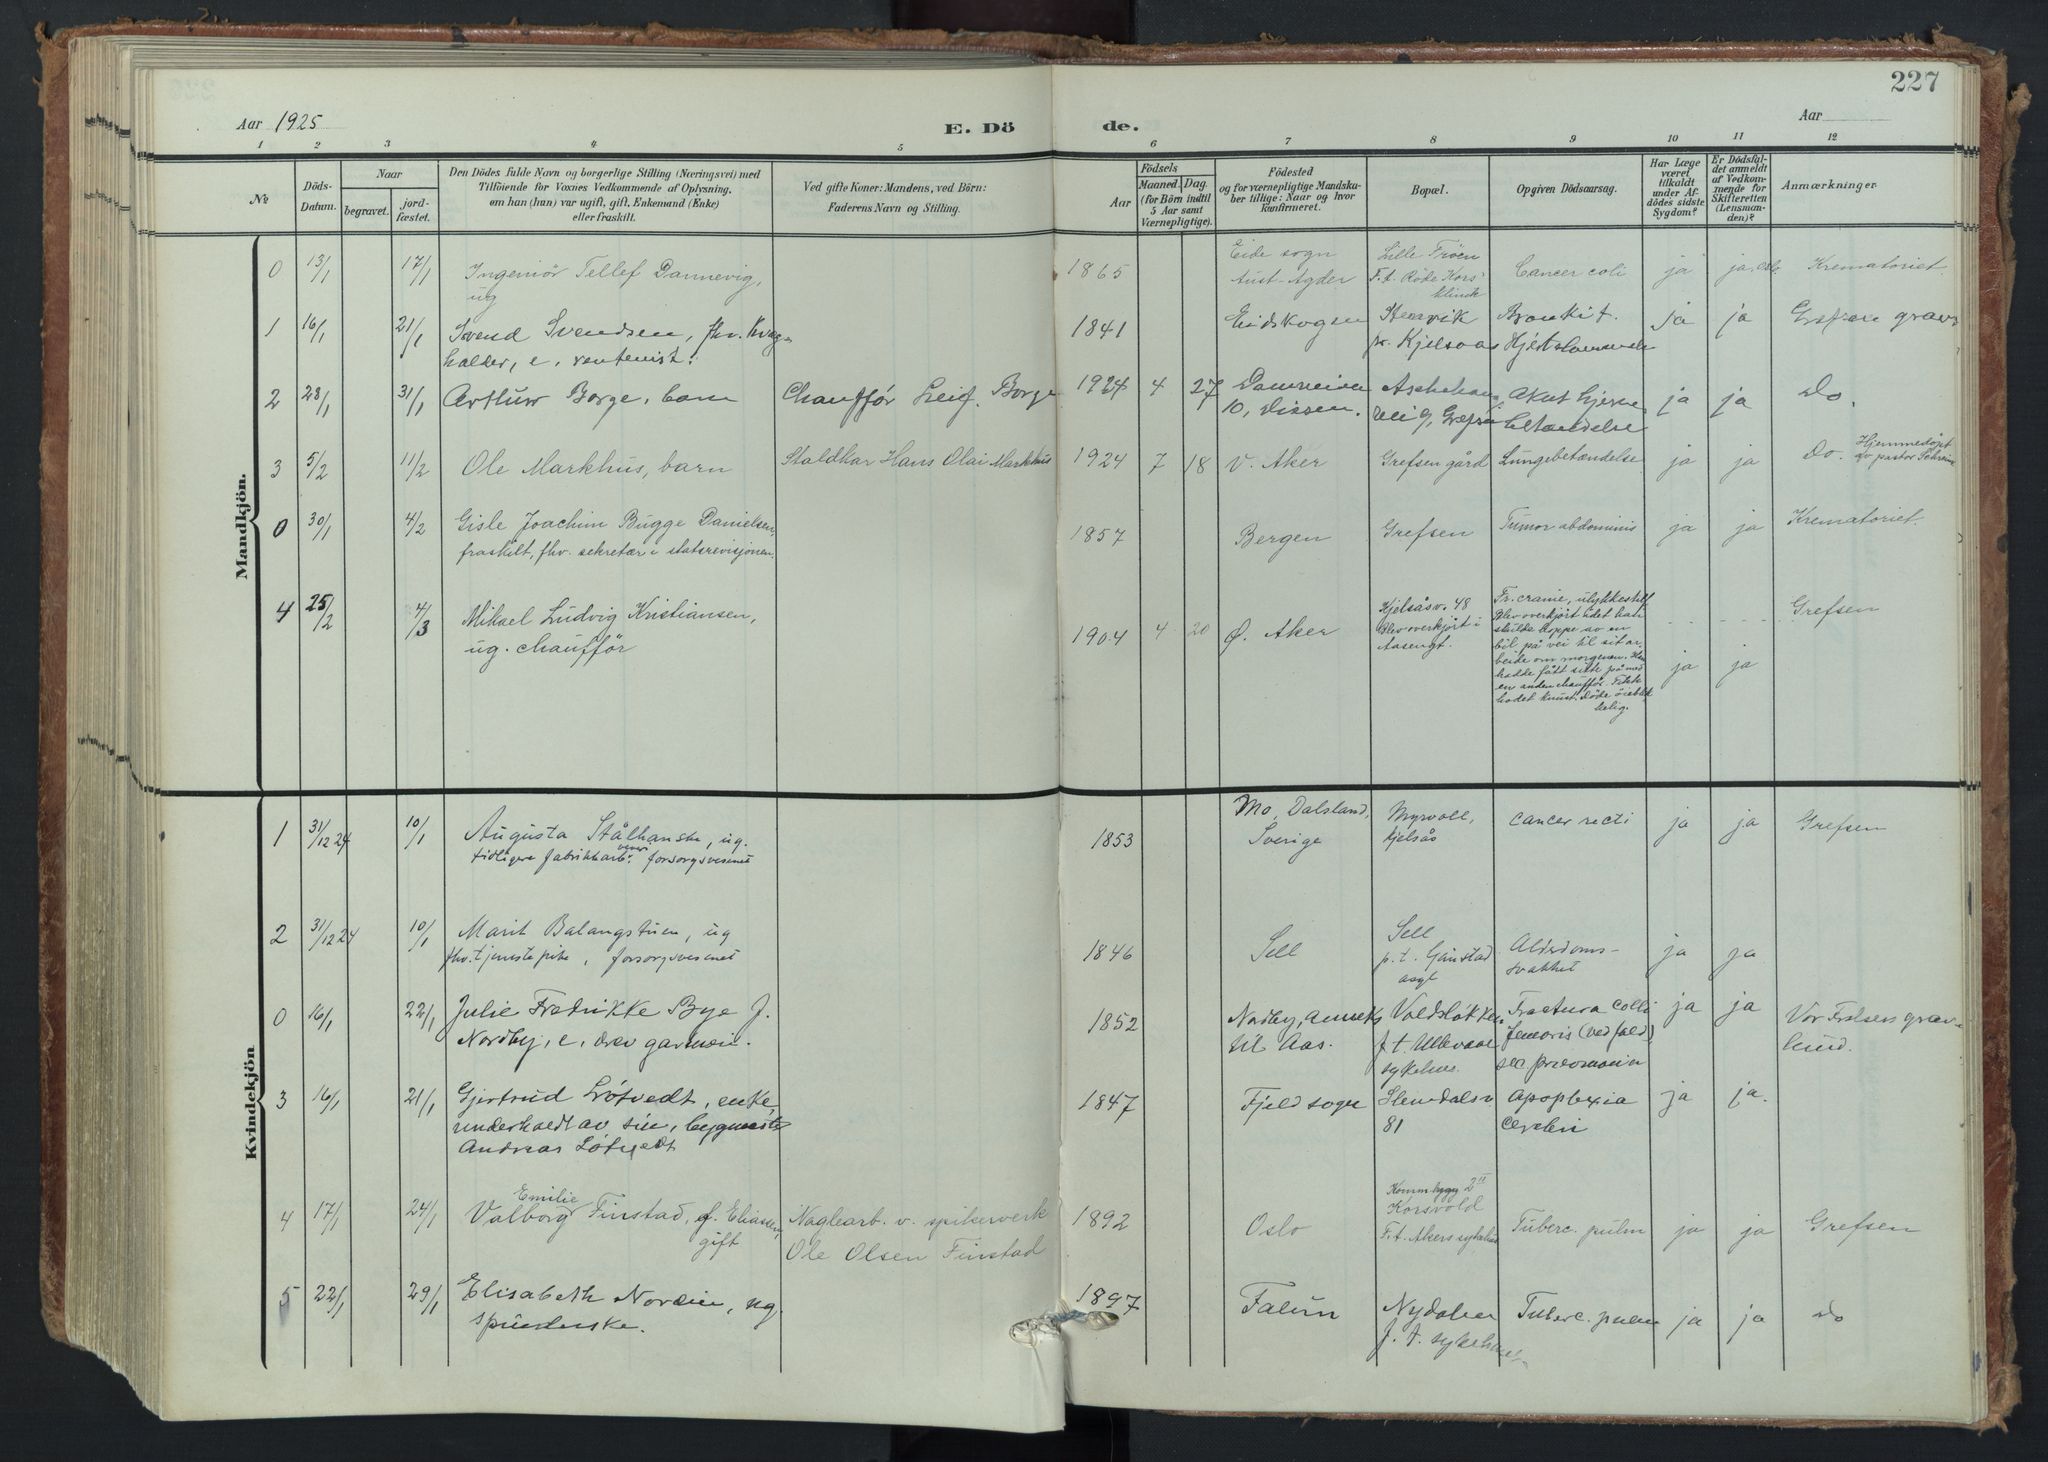 227
Aar 1925
E. Dö
de.
Aar
1 2 3 4 5 6 7 8 9 10 11 12
№
Döds-
Datum.
Naar
begravet.
jord-
fæstet.
Den Dödes fulde Navn og borgerlige Stilling (Næringsvei) med
Tilföiende for Voxnes Vedkommende af Oplysning,
om han (hun) var ugift, gift, Enkemand (Enke)
eller fraskilt.
Ved gifte Koner: Mandens, ved Börn:
Faderens Navn og Stilling.
Födsels
Aar
Maaned. Dag.
(for Börn indtil
5 Aar samt
Værnepligtige).
Födested
og for værnepligtige Mandska-
ber tillige: Naar og hvor
konfirmeret.
Bopæl.
Opgiven Dödsaarsag.
Har Læge
været
tilkaldt
under Af-
dödes sidste
Sygdom?
Er Dödsfal-
det anmeldt
af Vedkom-
mende for
Skifteretten
(Lensman-
den)?
Anmærkninger.
Mandkjön.
0 13/1 17/1 Ingeniör Tellef Dannevig,
ug
1865
Eide sogn
Aust-Agder
Lille Fröen
F.t. Röde Kors
klinik
Cancer coli
ja ja, Krematoriet.
1 16/1 21/1 Svend Svendsen, fhv.
holder, e, rentenist.
1841 Eidskogen
pr. Kjelsaas
Bronkit.
ja ja Grefsen grav
2 28/1 31/1 Arthur Borge, barn
Chauffør Leif Borge
1924 4 27
10, Dissen.
Akut hjerne
betændelse
ja ja Do.
3 5/2 11/2 Ole Markhus, barn
Staldkar Hans Olai Markhus
1924 7 18 V. Aker
Grefsen gård
Lungebetændelse
ja ja Do. Hjemmedöpt
av pastor
0 30/1 4/2 Gisle Joachim Bugge Danielsen,
fraskilt, fhv. sekretær i statsrevisjonen.
1857 Bergen Grefsen Tumor abdominis
ja ja Krematoriet.
4 25/2 4/3 Mikael Ludvig Kristiansen,
ug. chaufför
1904 4 20 Ø. Aker
Kjelsåsv. 48
Blev overkjört i
Aasengt.
Fr. cranie, ulykkestilf.
Blev overkjört idet han
skulde hoppe av en
bil på vei til sit ar-
beide om morgenen. Han
hadde fått sitte på med
en anden chaufför. Fikk
hodet knust. Döde öieblik-
kelig.
ja ja
Grefsen
Kvindekjön
1 31/12 24 10/1 Augusta Stålhanske, ug.
tidligere fabrikkarb. forsorgsvesenet
1853
Mo, Dalsland,
Sverige
Myrvoll,
Kjelsås
Cancer recti
ja ja Grefsen
2 31/12 24 10/1 Marit Balangstuen, ug
fhv. tjenestepike, forsorgsvesenet
1846 Sell
Sell
p.t. Gaustad
asyl
Alderdoms-
svakhet
ja ja
0 16/1 22/1 Julie Fredrikke Bye f.
Nordby, e, drev garnison.
1852 Nordby, anneks
til Aas.
Voldsløkken
f.t. Ullevaal
sykehus.
Fractura colli
femoris (ved fald)
sec. pneumonin
ja ja
Vor Frelsers grav-
lund.
3 16/1 21/1 Gjertrud Løtvedt, enke,
underholdt av sin, bygmester
Andreas Løtvedt
1847 Fjeld sogn
Slemdalsv
81
Apoplexia
cerebri
ja ja.
4 17/1 24/1 Emilie
Valborg Finstad, f. Eliassen,
gift
Naglearb. v. spikerverk
Ole Olsen Finstad
1892 Oslo
Kommbygg 2 II
Korsvold
F.t. Akers sykehus
Tuberc. pulm
ja ja Grefsen
5 22/1 29/1 Elisabeth Noreen, ug.
spinderske.
1897 Falun
Nydalen
f.t. sykehuset
Tuberc. pulm
ja ja Do